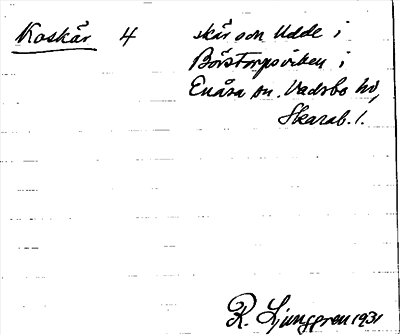 Koskär 4 skär som udde i
Börstorpsviken i
Enåsa sn. Vadsbo hd,
Skarab. l.
R. Ljunggren 1931